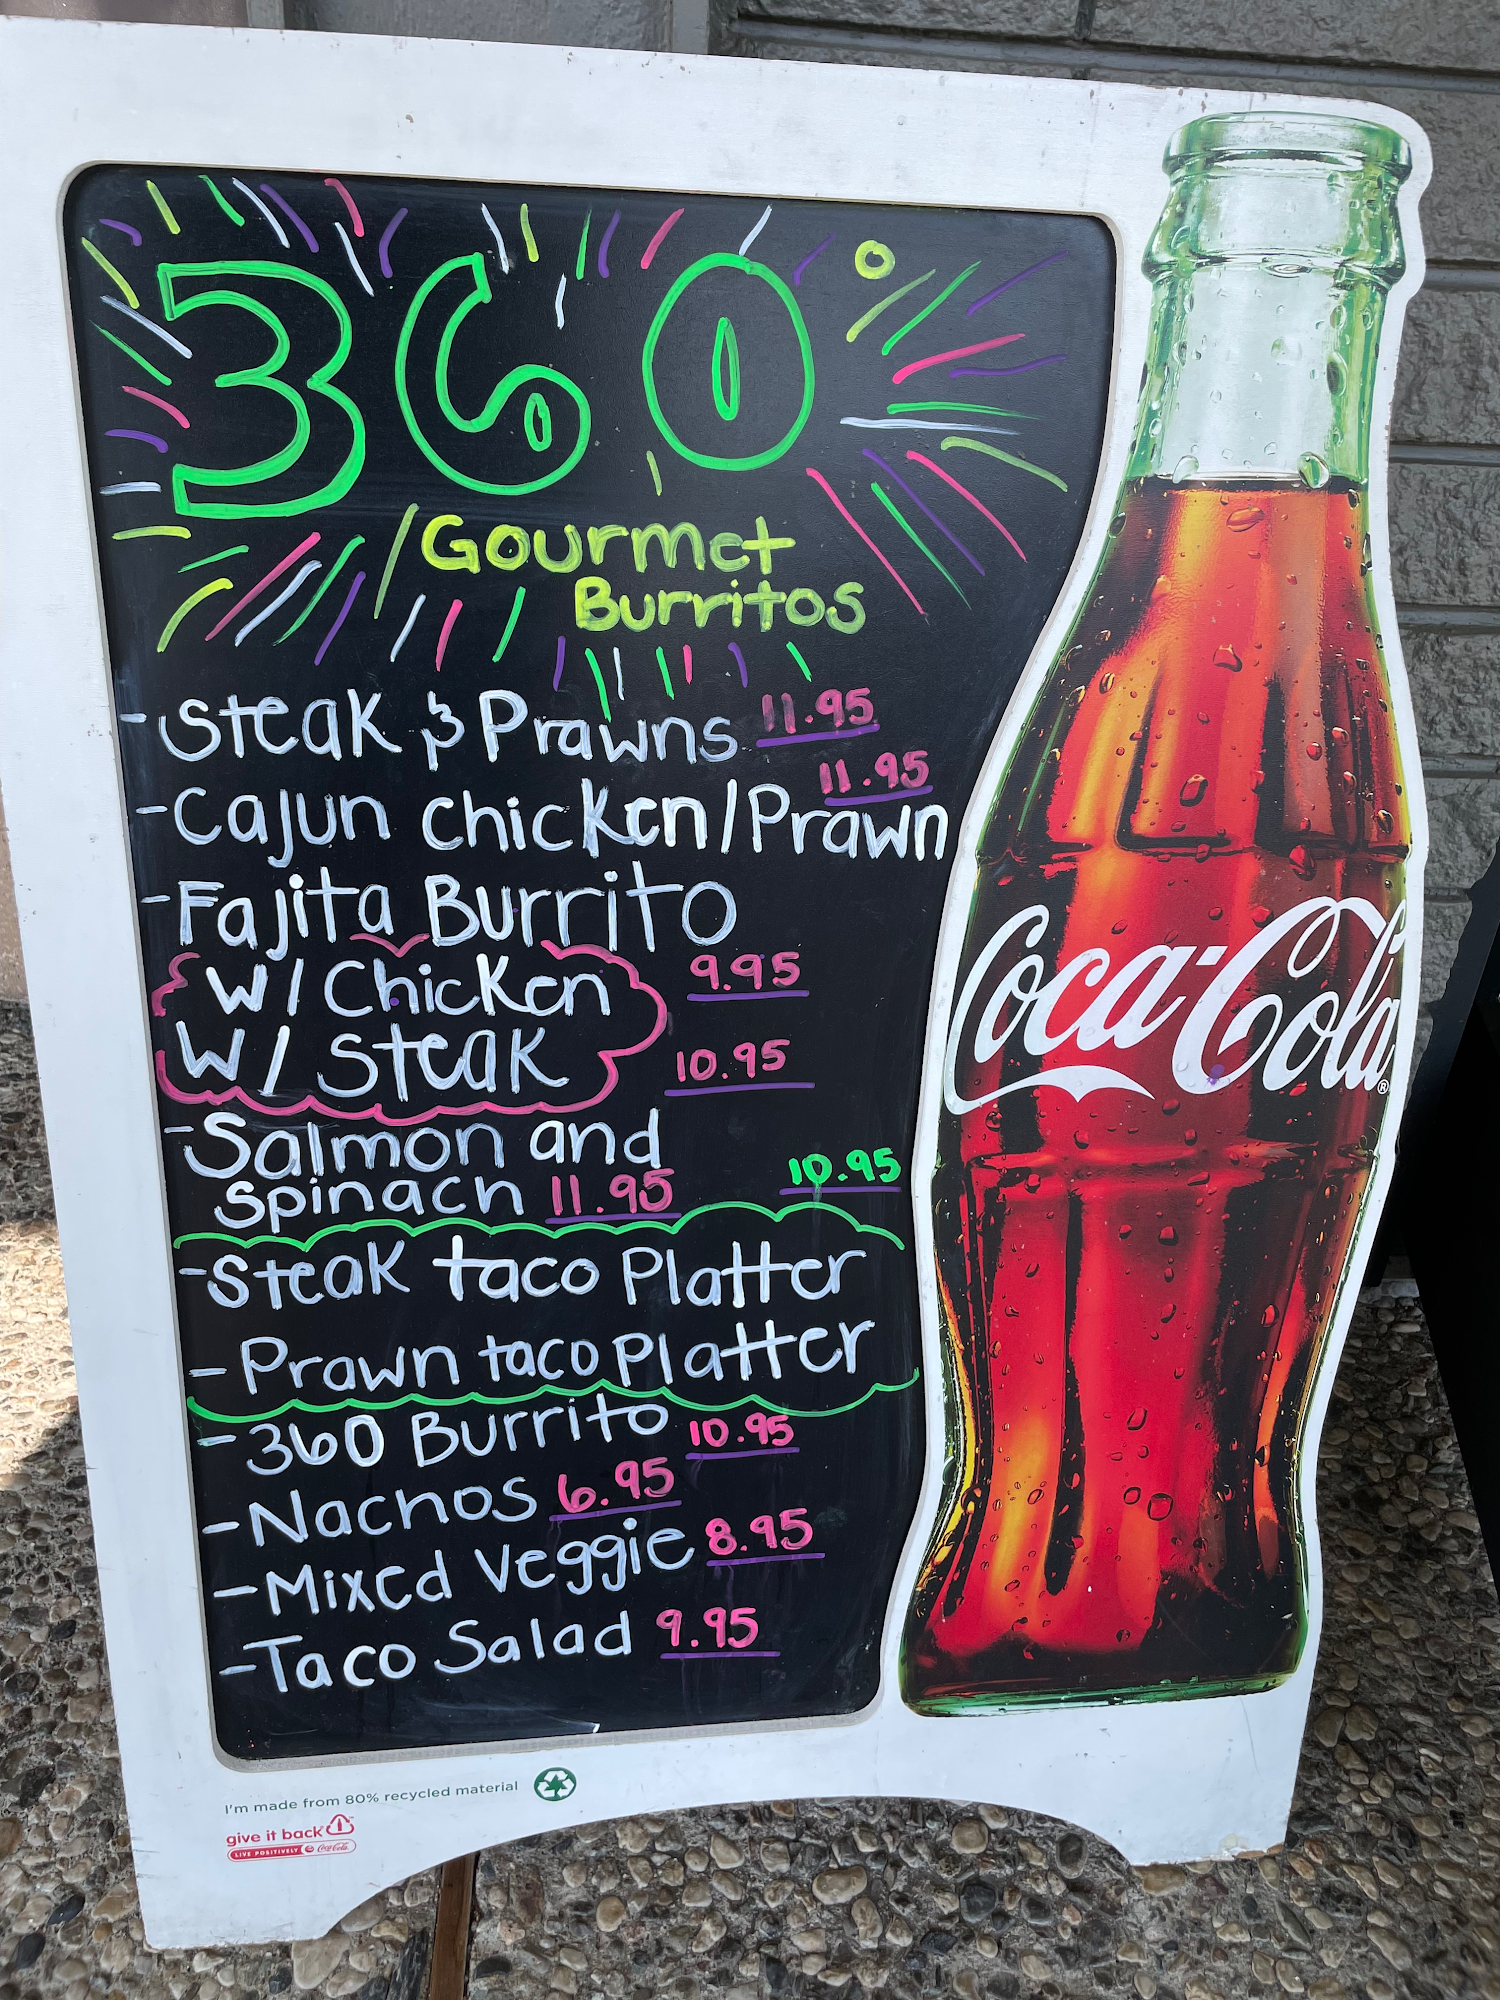 360°
Gourmet
Burritos
- Steak & Prawns 11.95
- Cajun Chicken/Prawn 11.95
- Fajita Burrito
W/ Chicken 9.95
W/ Steak 10.95
- Salmon and
Spinach 11.95
10.95
- Steak taco Platter
- Prawn taco Platter
- 360 Burrito 10.95
- Nachos 6.95
- Mixed Veggie 8.95
- Taco Salad 9.95
Coca-Cola®
I'm made from 80% recycled material
give it back
LIVE POSITIVELY Coca-Cola